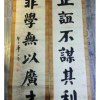 正誼不謀其利
非學無以廣才